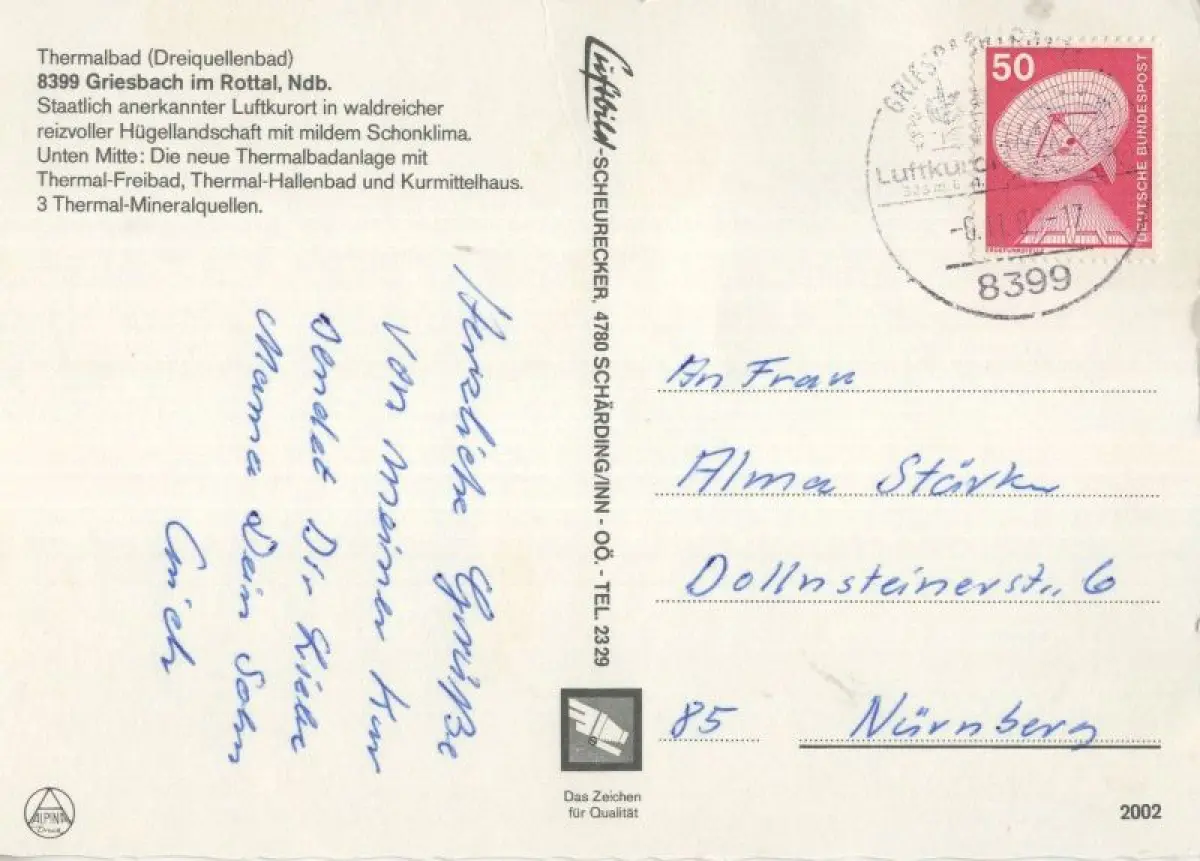 Thermalbad (Dreiquellenbad)
8399 Griesbach im Rottal, Ndb.
Staatlich anerkannter Luftkurort in waldreicher
reizvoller Hügellandschaft mit mildem Schonklima.
Unten Mitte: Die neue Thermalbadanlage mit
Thermal-Freibad, Thermal-Hallenbad und Kurmittelhaus.
3 Thermal-Mineralquellen.
Herzliche Grüße
von meiner Kur
sendet Dir Liebe
Mama Dein Sohn
Erich
Luftbild-SCHEURECKER, 4780 SCHÄRDING/INN - OÖ. - TEL. 2329
Das Zeichen
für Qualität
50
DEUTSCHE BUNDESPOST
Luftkurort
8399
An Frau
Alma Stärk
Dollnsteinerstr. 6
85 Nürnberg
ALPINA
Druck
2002